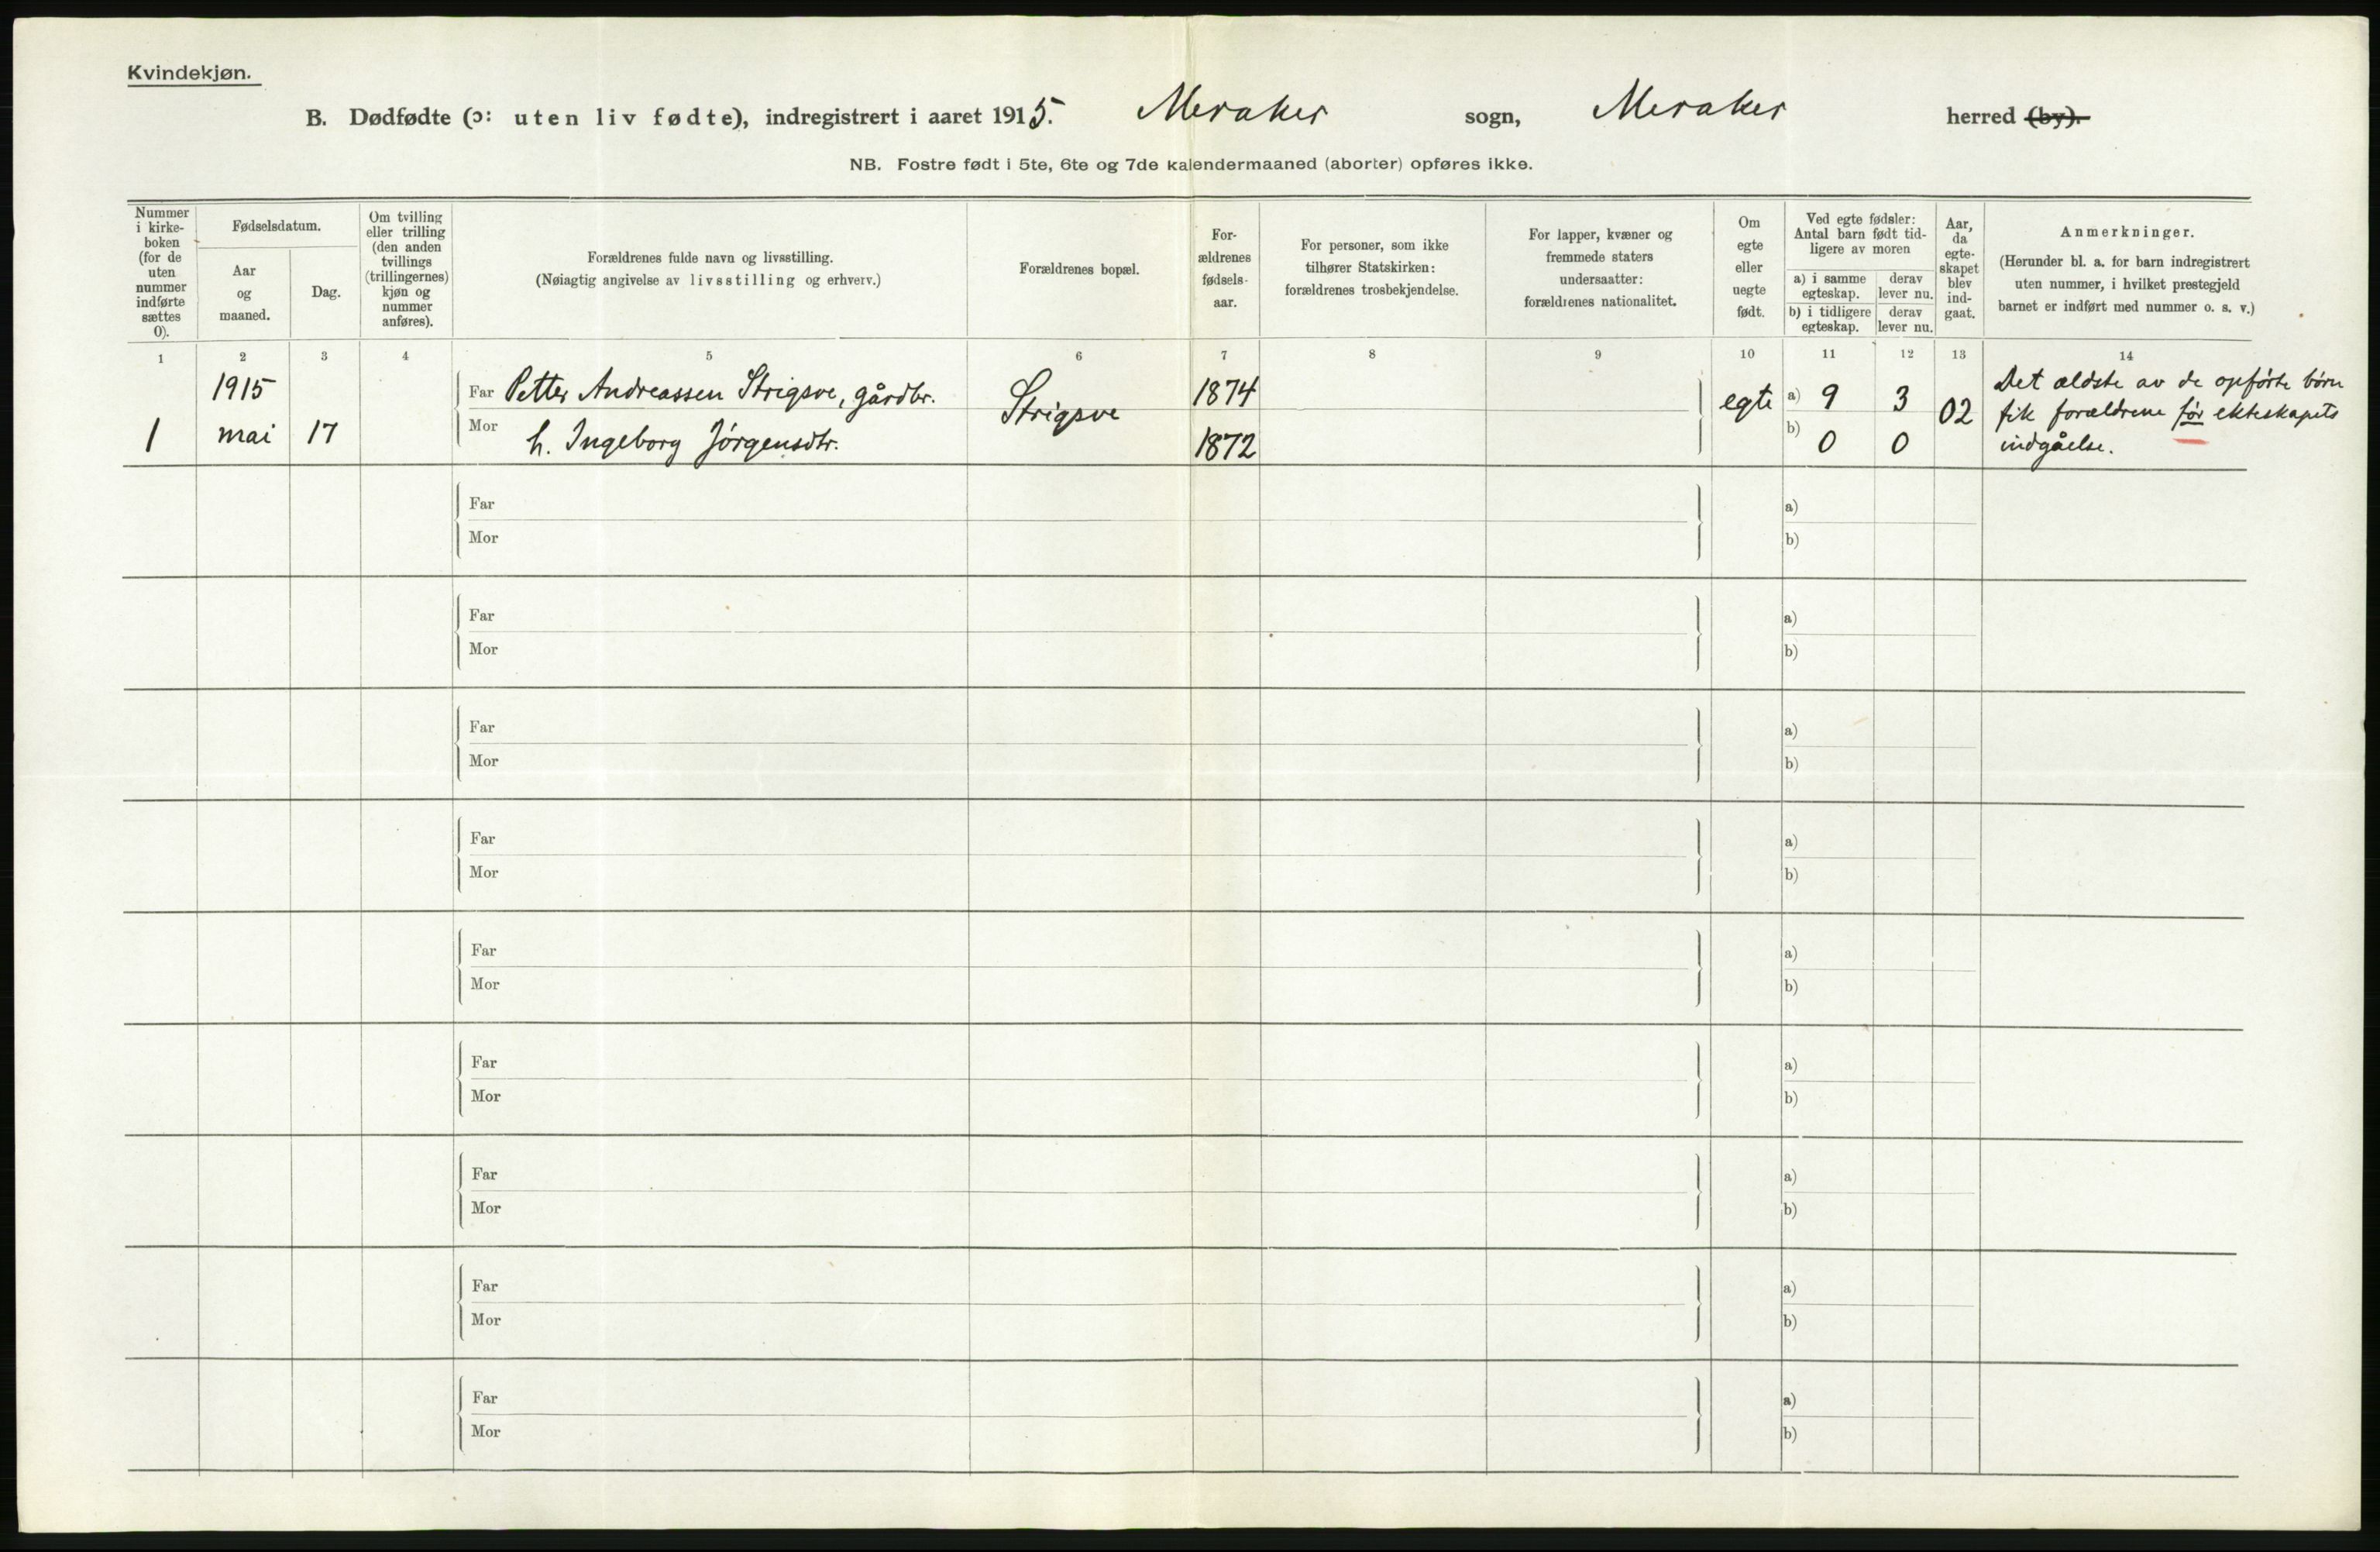 Kvindekjøn.
B. Dødfødte (ɔ: uten liv fødte), indregistrert i aaret 1915. Meraker sogn, Meraker herred (by).
NB. Fostre født i 5te, 6te og 7de kalendermaaned (aborter) opføres ikke.
Nummer
i kirke-
boken
(for de
uten
nummer
indførte
sættes
0).
Fødselsdatum.
Aar
og
maaned.
Dag.
Om tvilling
eller trilling
(den anden
tvillings
(trillingernes)
kjøn og
nummer
anføres).
Forældrenes fulde navn og livsstilling.
(Nøiagtig angivelse av livsstilling og erhverv.)
Forældrenes bopæl.
For-
ældrenes
fødsels-
aar.
For personer, som ikke
tilhører Statskirken:
forældrenes trosbekjendelse.
For lapper, kvæner og
fremmede staters
undersaatter:
forældrenes nationalitet.
Om
egte
eller
uegte
født.
Ved egte fødsler:
Antal barn født tid-
ligere av moren
a) i samme
egteskap.
derav
lever nu.
b) i tidligere
egteskap.
derav
lever nu.
Aar,
da
egte-
skapet
blev
ind-
gaat.
Anmerkninger.
(Herunder bl. a. for barn indregistrert
uten nummer, i hvilket prestegjeld
barnet er indført med nummer o. s. v.)
1 2 3 4 5 6 7 8 9 10 11 12 13 14
1915 Far Petter Andreassen Strigsve, gårdbr. Strigsve 1874 egte a) 9 3 02 Det ældste av de opførte børn
fik forældrene før ekteskapets
1 mai 17 Mor h. Ingeborg Jørgensdtr. 1872 b) 0 0 indgåelse.
Far a)
Mor b)
Far a)
Mor b)
Far a)
Mor b)
Far a)
Mor b)
Far a)
Mor b)
Far a)
Mor b)
Far a)
Mor b)
Far a)
Mor b)
Far a)
Mor b)